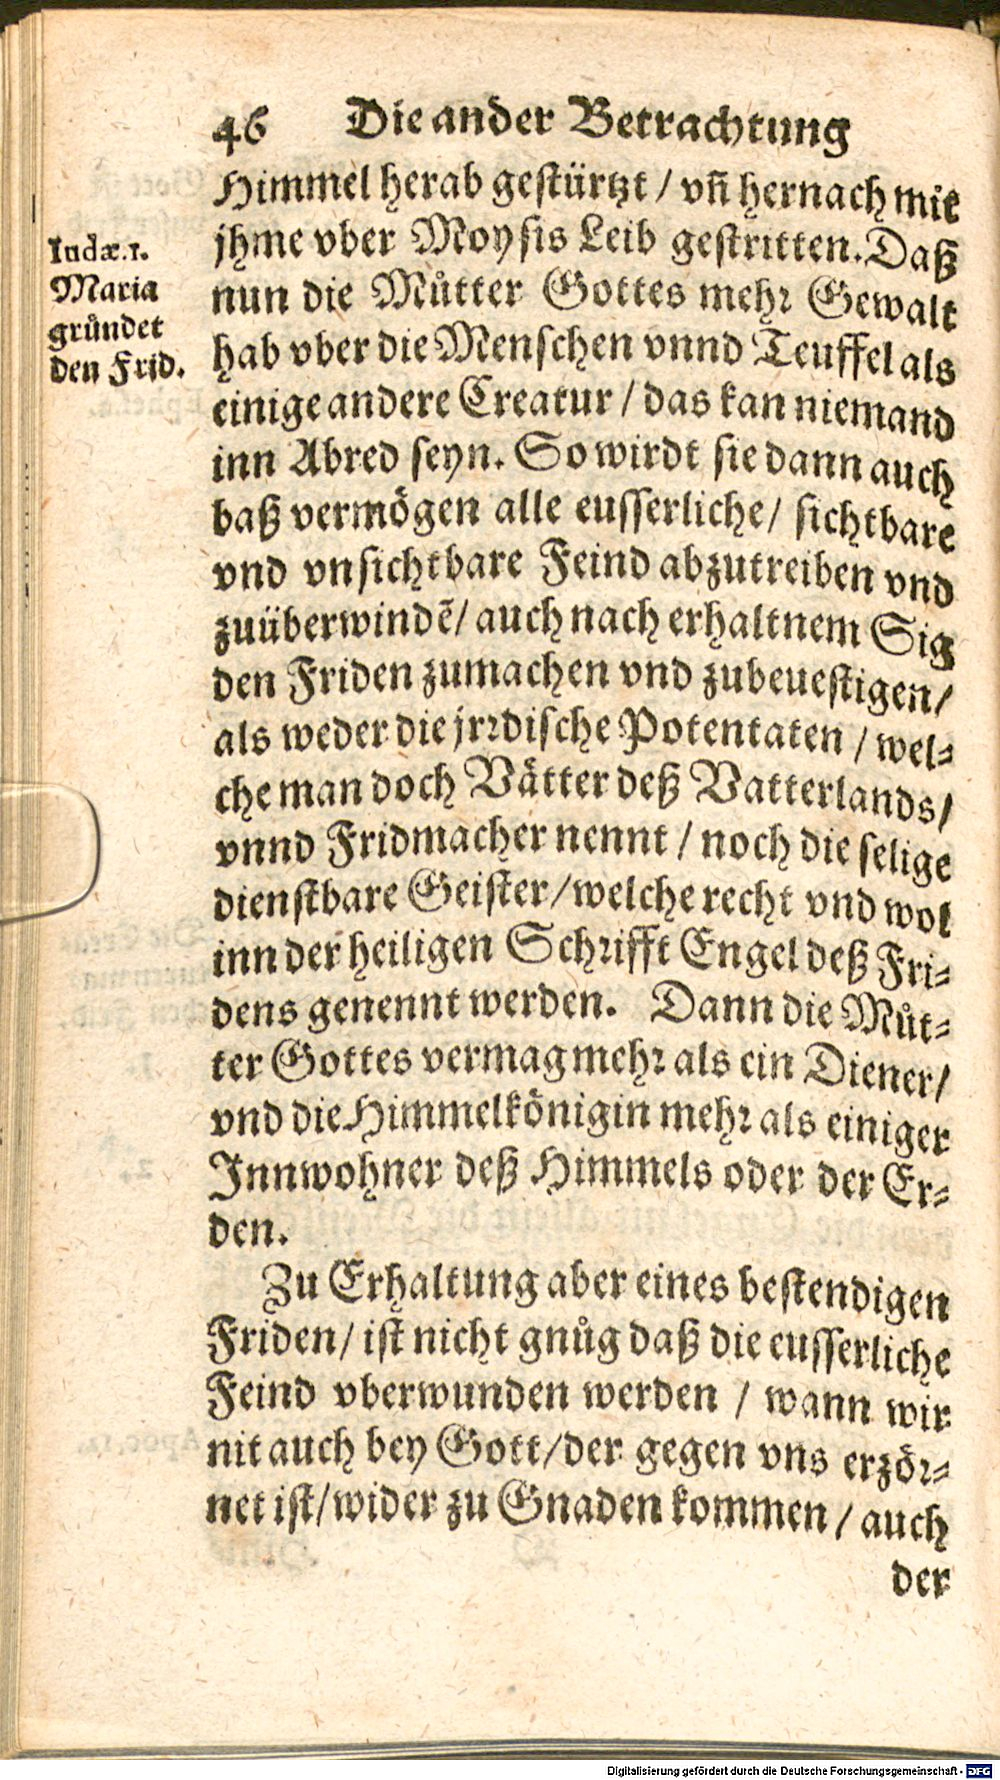 46 Die ander Betrachtung
Himmel herab gestürtzt / vñ hernach mit
jhme vber Moysis Leib gestritten. Daß
nun die Můtter Gottes mehr Gewalt
hab vber die Menschen vnnd Teuffel als
einige andere Creatur / das kan niemand
inn Abred seyn. So wirdt sie dann auch
baß vermögen alle eusserliche / sichtbare
vnd vnsichtbare Feind abzutreiben vnd
zuüberwindẽ / auch nach erhaltnem Sig
den Friden zumachen vnd zubeuestigen /
als weder die jrrdische Potentaten / wel-
che man doch Vätter deß Vatterlands /
vnnd Fridmacher nennt / noch die selige
dienstbare Geister / welche recht vnd wol
inn der heiligen Schrifft Engel deß Fri-
dens genennt werden. Dann die Můt-
ter Gottes vermag mehr als ein Diener /
vnd die Himmelkönigin mehr als einiger
Innwohner deß Himmels oder der Er-
den.
Zu Erhaltung aber eines bestendigen
Friden / ist nicht gnůg daß die eusserliche
Feind vberwunden werden / wann wir
nit auch bey Gott / der gegen vns erzör-
net ist / wider zu Gnaden kommen / auch
der
Iudæ.1.
Maria
gründet
den Frid.
Digitalisierung gefördert durch die Deutsche Forschungsgemeinschaft - DFG